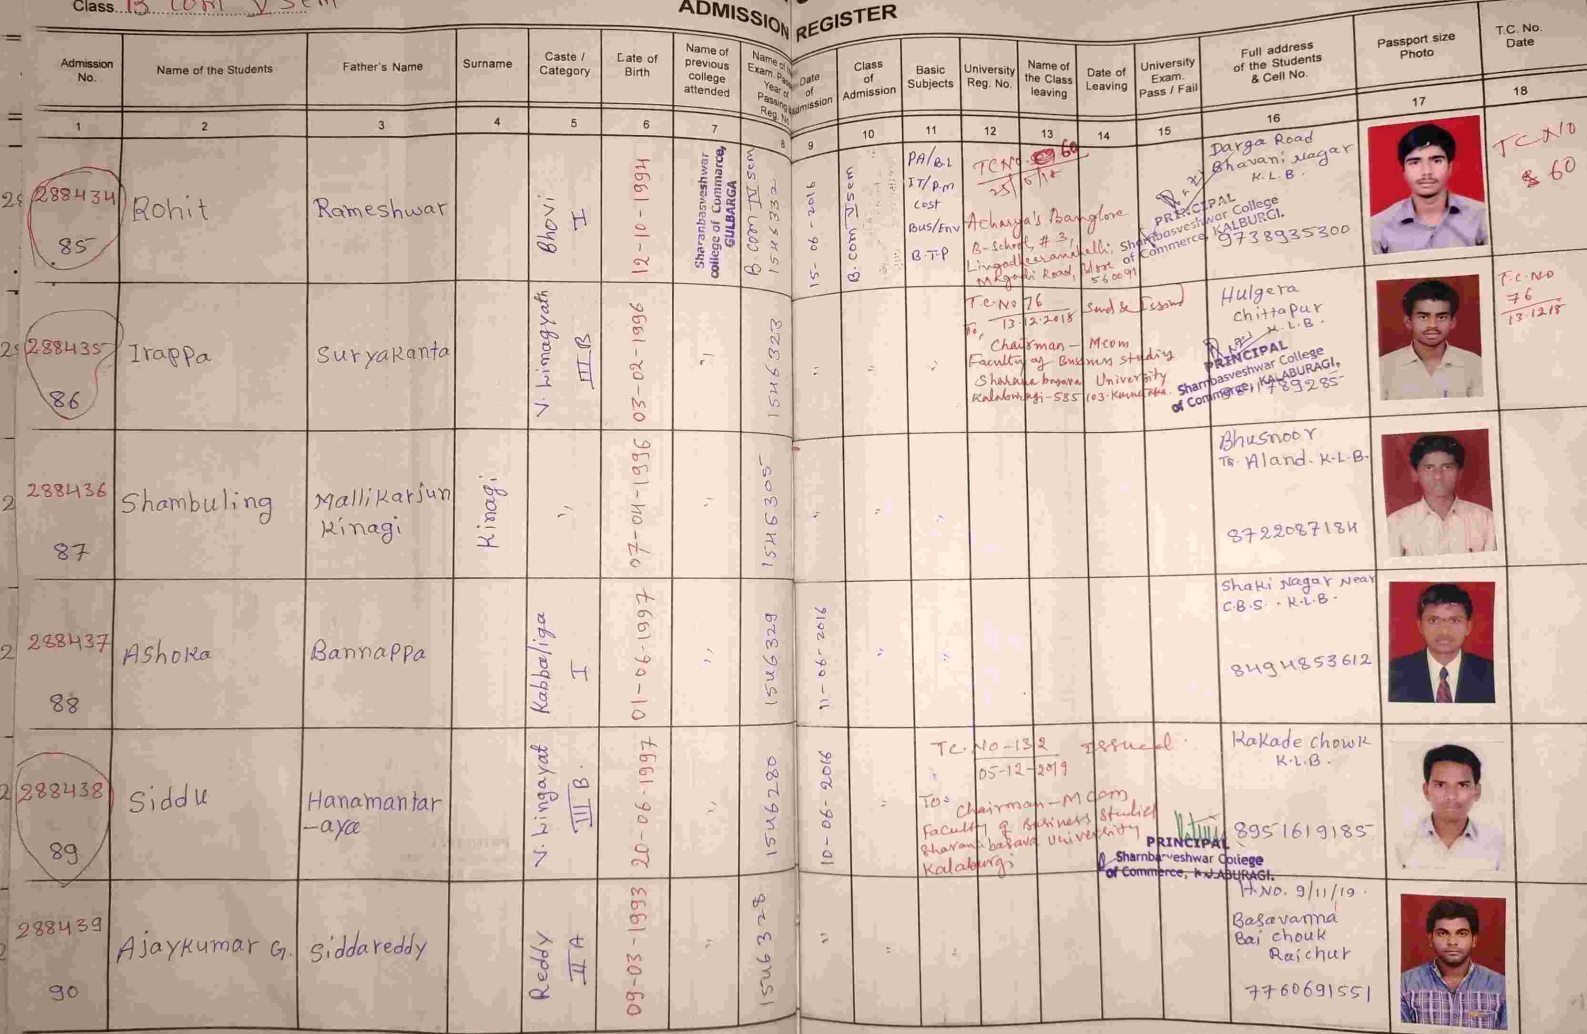 Class B com V sem
ADMISSION REGISTER
Admission No.
Name of the Students
Father's Name
Surname
Caste / Category
Date of Birth
Name of previous college attended
Name of Exam. Pa Year of Passing Reg. No
Date of Admission
Class of Admission
Basic Subjects
University Reg. No.
Name of the Class leaving
Date of Leaving
University Exam. Pass / Fail
Full address of the Students & Cell No.
Passport size Photo
T.C. No. Date
1 2 3 4 5 6 7 8 9 10 11 12 13 14 15 16 17 18
288434
85
Rohit
Rameshwar
Bhovi
I
12-10-1994
Sharanbasveshwar
college of Commerce,
GULBARGA
B.com IV sem
1546332
15-06-2016
B.com V sem
PA/B.L
IT/P.M
Cost
Bus/Env
B.T.P
TC No. 60
25/6/18
Acharya's Banglore
B-School, # 3,
Magadi Road, Blore
560091
Darga Road
Bhavani Nagar
K.L.B.
PRINCIPAL
Sharnbasveshwar College
of Commerce, KALBURGI.
9738935300
TC No
60
288435
86
Irappa
Suryakanta
V. Lingayath
III B
03-02-1996
"
1546323
"
"
"
T.C.No 76
13.12.2018
To,
Chairman - Mcom
Faculty of Business studies
Sharnabasava University
Kalaburagi-585 103.
Hulgera
Chittapur
K.L.B.
PRINCIPAL
Sharnbasveshwar College
of Commerce, KALABURAGI.
T.C.No
76
13.12.18
288436
87
Shambuling
Mallikarjun
Kinagi
Kinagi
"
07-04-1996
"
1546305
"
"
"
Bhusnoor
Tq. Aland. K.L.B.
8722087184
288437
88
Ashoka
Bannappa
Kabbaliga
I
01-06-1997
"
1546329
11-06-2016
"
Shahi Nagar Near
C.B.S. . K.L.B.
8494853612
288438
89
Siddu
Hanamantar
-aya
V. Lingayat
III B.
20-06-1997
"
1546280
10-06-2016
"
"
TC.NO-132 Issued.
05-12-2019
To:
Chairman-Mcom
Faculty of Business Studies
Sharanabasava University
Kalaburgi
Kakade Chowk
K.L.B.
8951619185
PRINCIPAL
Sharnbasveshwar College
of Commerce, KALABURAGI.
288439
90
Ajaykumar G.
Siddareddy
Reddy
II A
09-03-1993
"
1546328
"
"
"
H.NO. 9/11/19.
Basavanna
Bai chouk
Raichur
7760691551